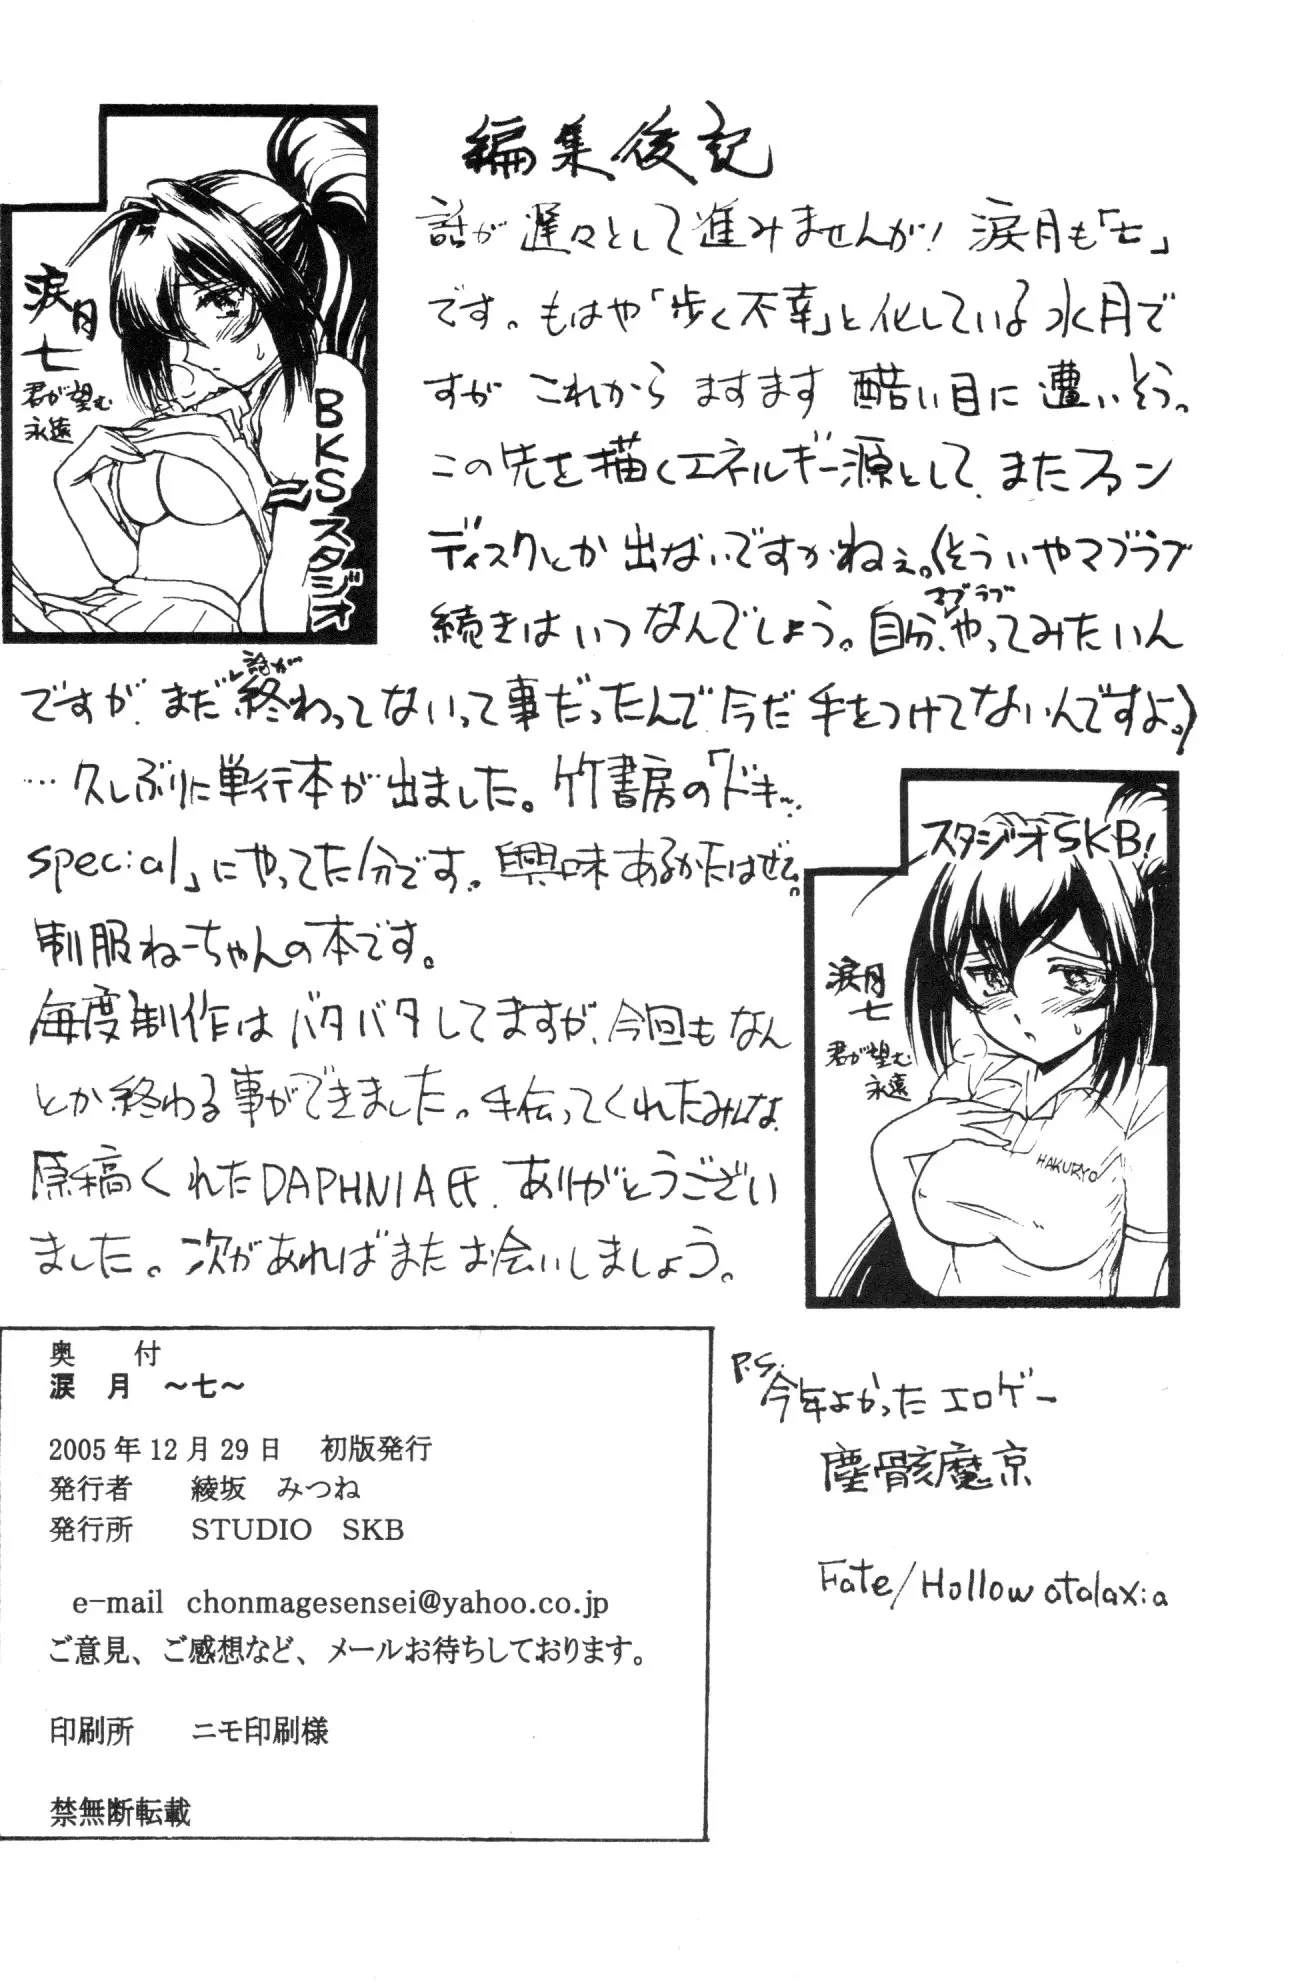 編集後記
話が遅々として進みませんが! 涙月も「七」
です。もはや「歩く不幸」と化している水月で
すが これからますます酷い目に遭いそう。
この先を描くエネルギー源として、またファン
ディスクとか出ないですかねぇ。(そういやマブラブ
続きはいつなんでしょう。自分、やってみたいん
マブラブ
ですが、まだ終わってないって事だったんで今だ手をつけてないんですよ。)
話が
…久しぶりに単行本が出ました。竹書房の「ドキッ
special」にやってた分です。興味あるかたはぜひ。
制服ねーちゃんの本です。
毎度制作はバタバタしてますが、今回もなん
とか終わる事ができました。手伝ってくれたみんな、
原稿くれたDAPHNIA氏、ありがとうござい
ました。次があればまたお会いしましょう。
涙月
七
君が望む
永遠
BKSスタジオ
スタジオSKB!
涙月
七
君が望む
永遠
HAKURYO
奥 付
涙 月 ~七~
2005年12月29日 初版発行
発行者 綾坂 みつね
発行所 STUDIO SKB
e-mail chonmagesensei@yahoo.co.jp
ご意見、ご感想など、メールお待ちしております。
印刷所 ニモ印刷様
禁無断転載
P.S.
今年よかったエロゲー
塵骸魔京
Fate/Hollow atalaxia